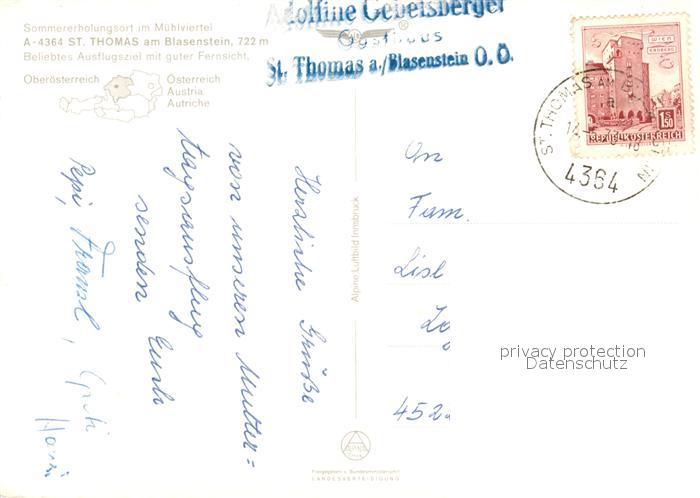 Sommererholungsort im Mühlviertel
A-4364 ST. THOMAS am Blasenstein, 722 m
Beliebtes Ausflugsziel mit guter Fernsicht.
Oberösterreich
Österreich
Austria
Autriche
Adolfine Gebetsberger
Gasthaus
St. Thomas a./Blasenstein O.Ö.
WIEN
ERDBERG
1S50
REPUBLIK ÖSTERREICH
ST. THOMAS AM
4364
Herzliche Grüße
von unseren Mutter=
tagsausflug
senden Euch
Pepi, Franzl,
Hansi
Alpine Luftbild Innsbruck
An
Fam.
Lisl
452
privacy protection
Datenschutz
Freigegeben v. Bundesministerium f.
LANDESVERTEIDIGUNG